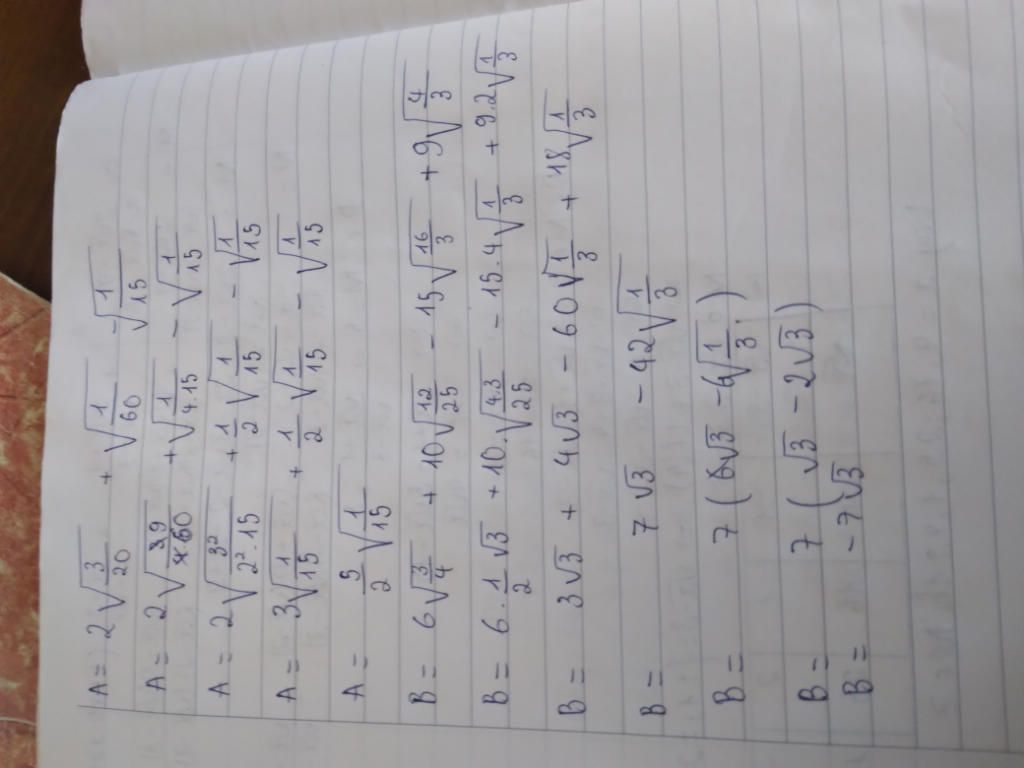 A = 2√(3/20) + √(1/60) - √(1/15)
A = 2√(9/60) + √(1/4.15) - √(1/15)
A = 2√(3²/2².15) + 1/2 √(1/15) - √(1/15)
A = 3√(1/15) + 1/2 √(1/15) - √(1/15)
A = 5/2 √(1/15)
B = 6√(3/4) + 10√(12/25) - 15√(16/3) + 9√(4/3)
B = 6 . 1/2 √3 + 10.√(4.3/25) - 15.4√(1/3) + 9.2√(1/3)
B = 3√3 + 4√3 - 60√(1/3) + 18√(1/3)
B = 7√3 - 42√(1/3)
B = 7(√3 - 6√(1/3))
B = 7(√3 - 2√3)
B = -7√3